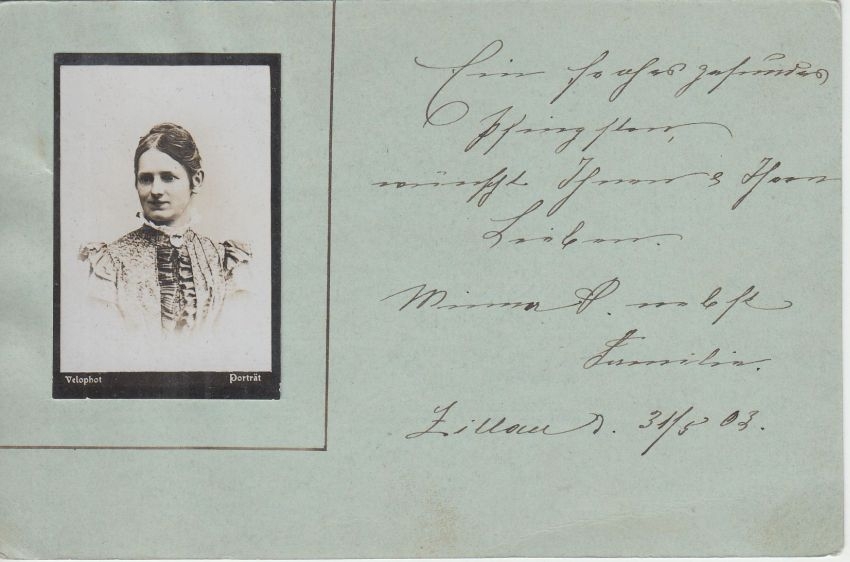 Velophot Porträt
Ein frohes gesundes
Pfingsten,
wünscht Ihnen & Ihren
Lieben.
Minna P. nebst
Familie.
Zittau d. 31/5 03.